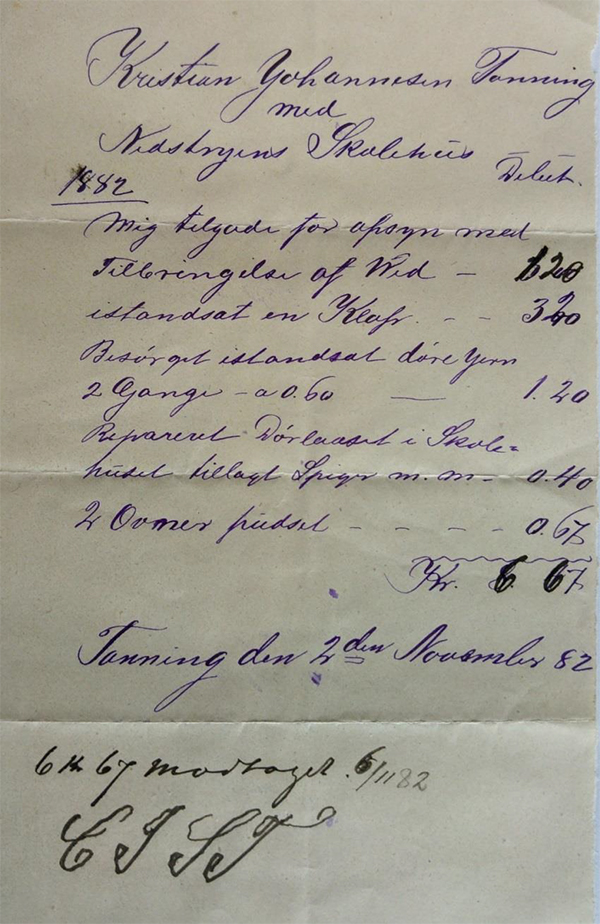 Kristian Johannesen Tonning
med
Nedstryens Skolehüs
Debet.
1882
Mig tilgode for opsyn med
Tilbringelse af Wed - 1 20
istandsat en Klafr. - - 3 20
Besørget istandsat døre Jern
2 Gange - a 0.60 — 1.20
Repareret Dørlaaset i Skole=
hüset tillagt Spiger m. m - 0.40
2 Ovner püdset - - - - 0.67
Kr. 6 67
Tonning den 2den November 82
6 Kr 67 modtaget. 6/11 82